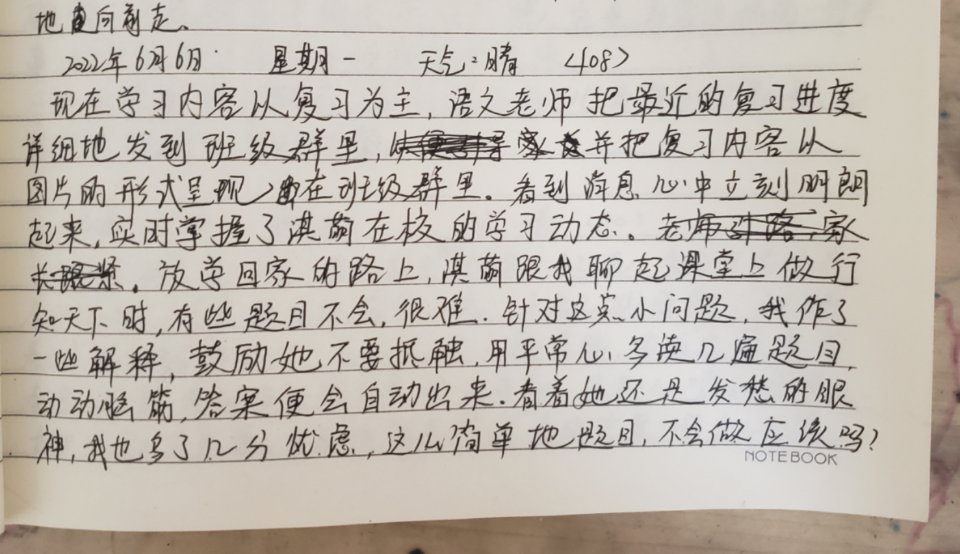 地直向前走。
2022年6月6日 星期一 天气:晴 <408>
现在学习内容以复习为主,语文老师把最近的复习进度
详细地发到班级群里,并把复习内容以
图片的形式呈现在班级群里。看到消息心中立刻明朗
起来,实时掌握了淇萌在校的学习动态。
放学回家的路上,淇萌跟我聊起课堂上做行
知天下时,有些题目不会,很难。针对这点小问题,我作了
一些解释,鼓励她不要抵触,用平常心,多读几遍题目,
动动脑筋,答案便会自动出来。看着她还是发愁的眼
神,我也多了几分忧虑,这么简单地题目,不会做应该吗?
NOTEBOOK